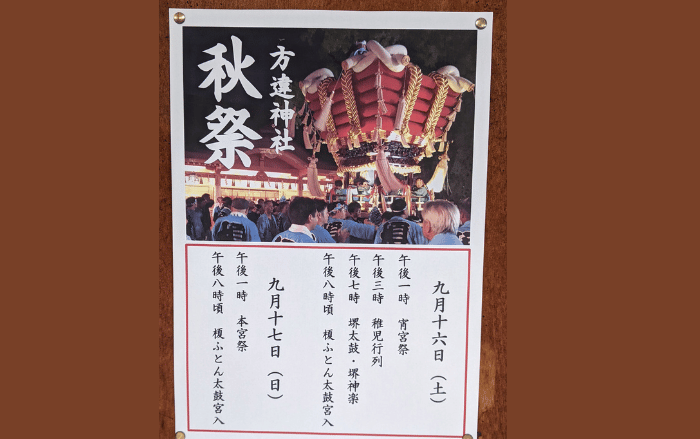 方違神社
秋祭
九月十六日（土）
午後一時　宵宮祭
午後三時　稚児行列
午後七時　堺太鼓・堺神楽
午後八時頃　榎ふとん太鼓宮入
九月十七日（日）
午後一時　本宮祭
午後八時頃　榎ふとん太鼓宮入